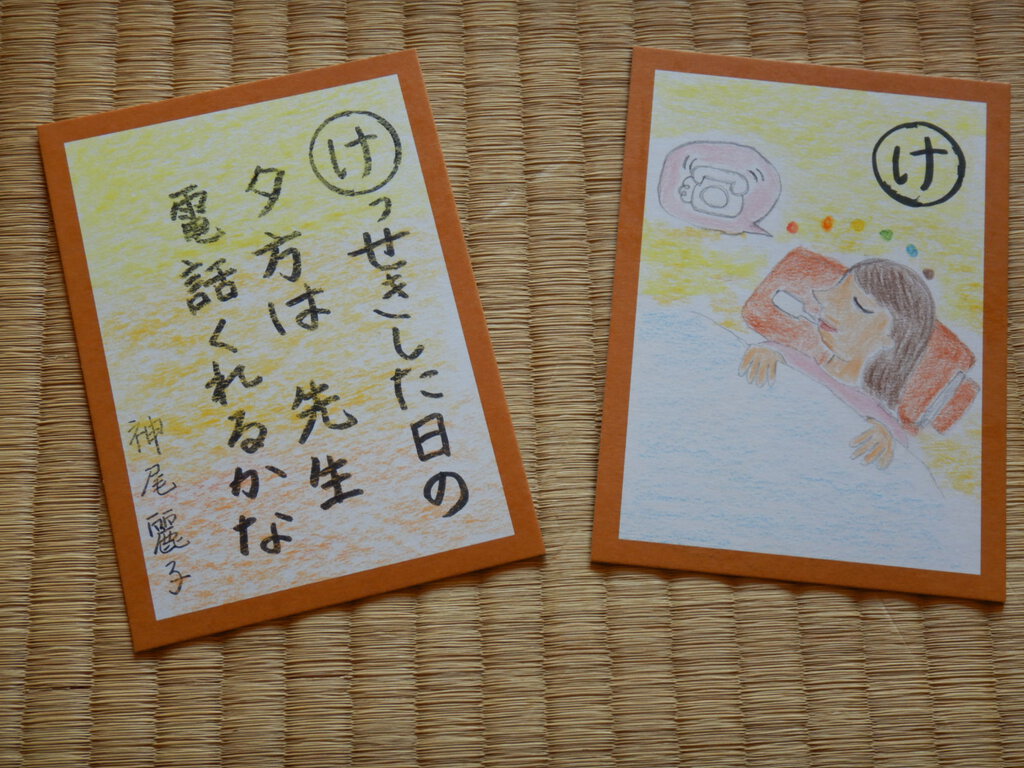 けっせきした日の
夕方は 先生
電話くれるかな
神尾麗子
け